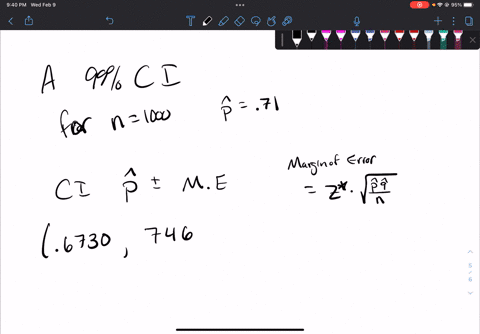 9:40 PM Wed Feb 9
95%
A 99% CI
for n=1000 p̂ = .71
Margin of Error
= Z* · √(p̂q̂/n)
CI p̂ ± M.E
(.6730, 746